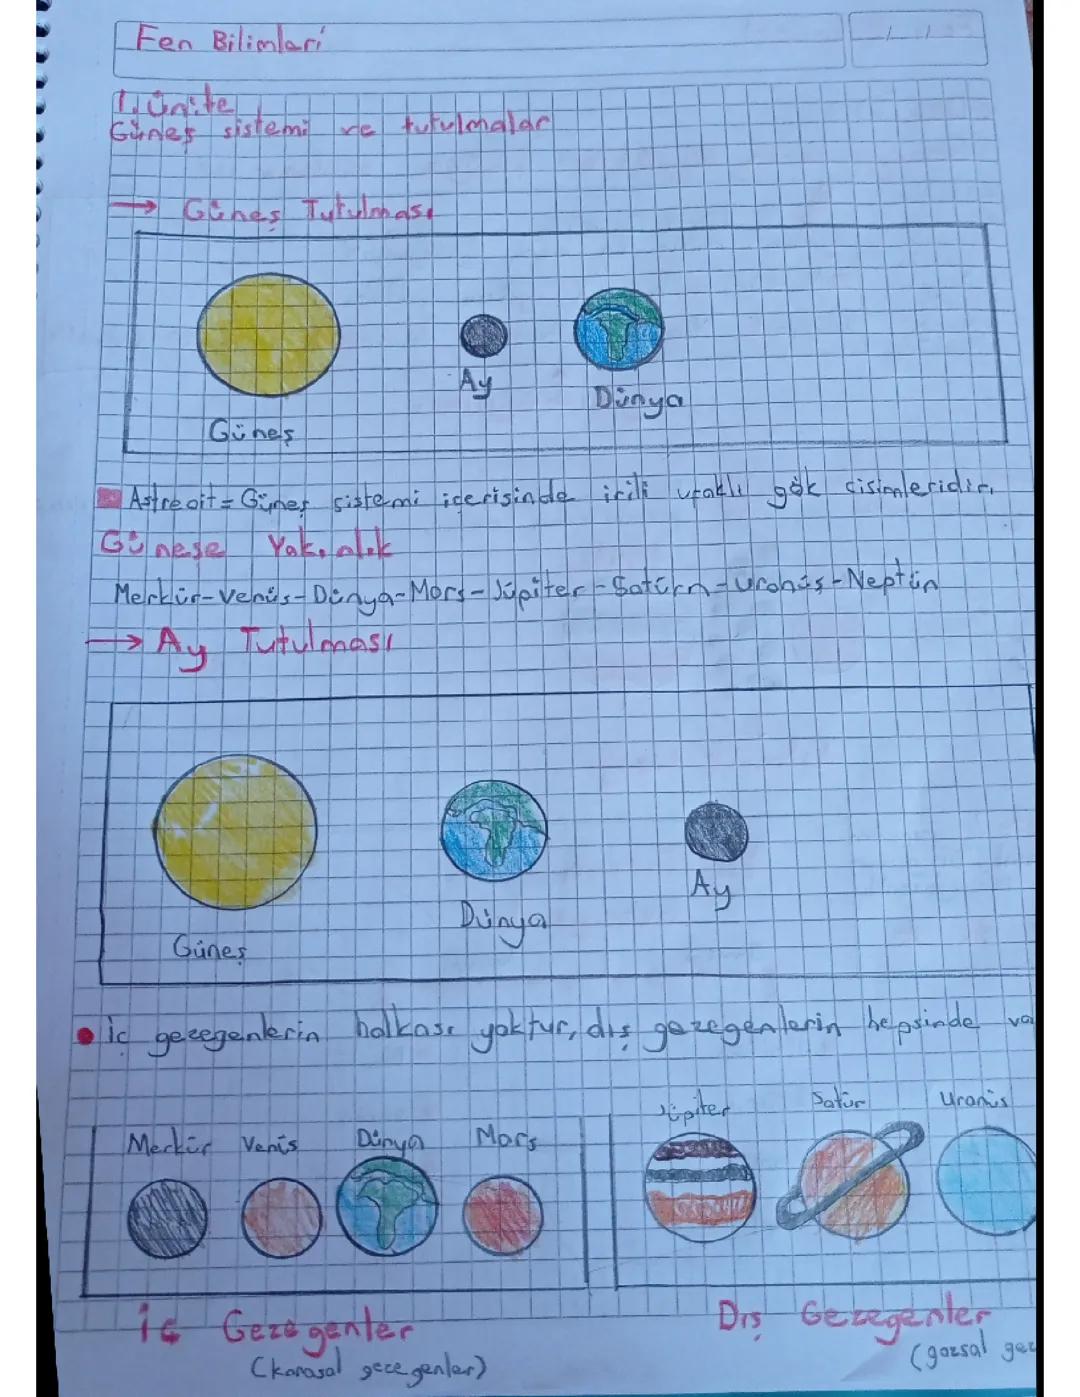 Fen Bilimleri
1. Ünite
Güneş sistemi ve tutulmalar
→ Güneş Tutulması
Güneş
Ay
Dünya
Astreoit = Güneş sistemi içerisinde irili ufaklı gök cisimleridir.
Güneşe Yakınlık
Merkür-Venüs-Dünya-Mars-Jüpiter-Satürn-Uranüs-Neptün
→ Ay Tutulması
Güneş
Dünya
Ay
İç gezegenlerin halkası yoktur, dış gezegenlerin hepsinde va
Merkür Venüs Dünya Mars
Jüpiter Satür Uranüs
İç Gezegenler
(karasal gezegenler)
Dış Gezegenler
(gazsal gez